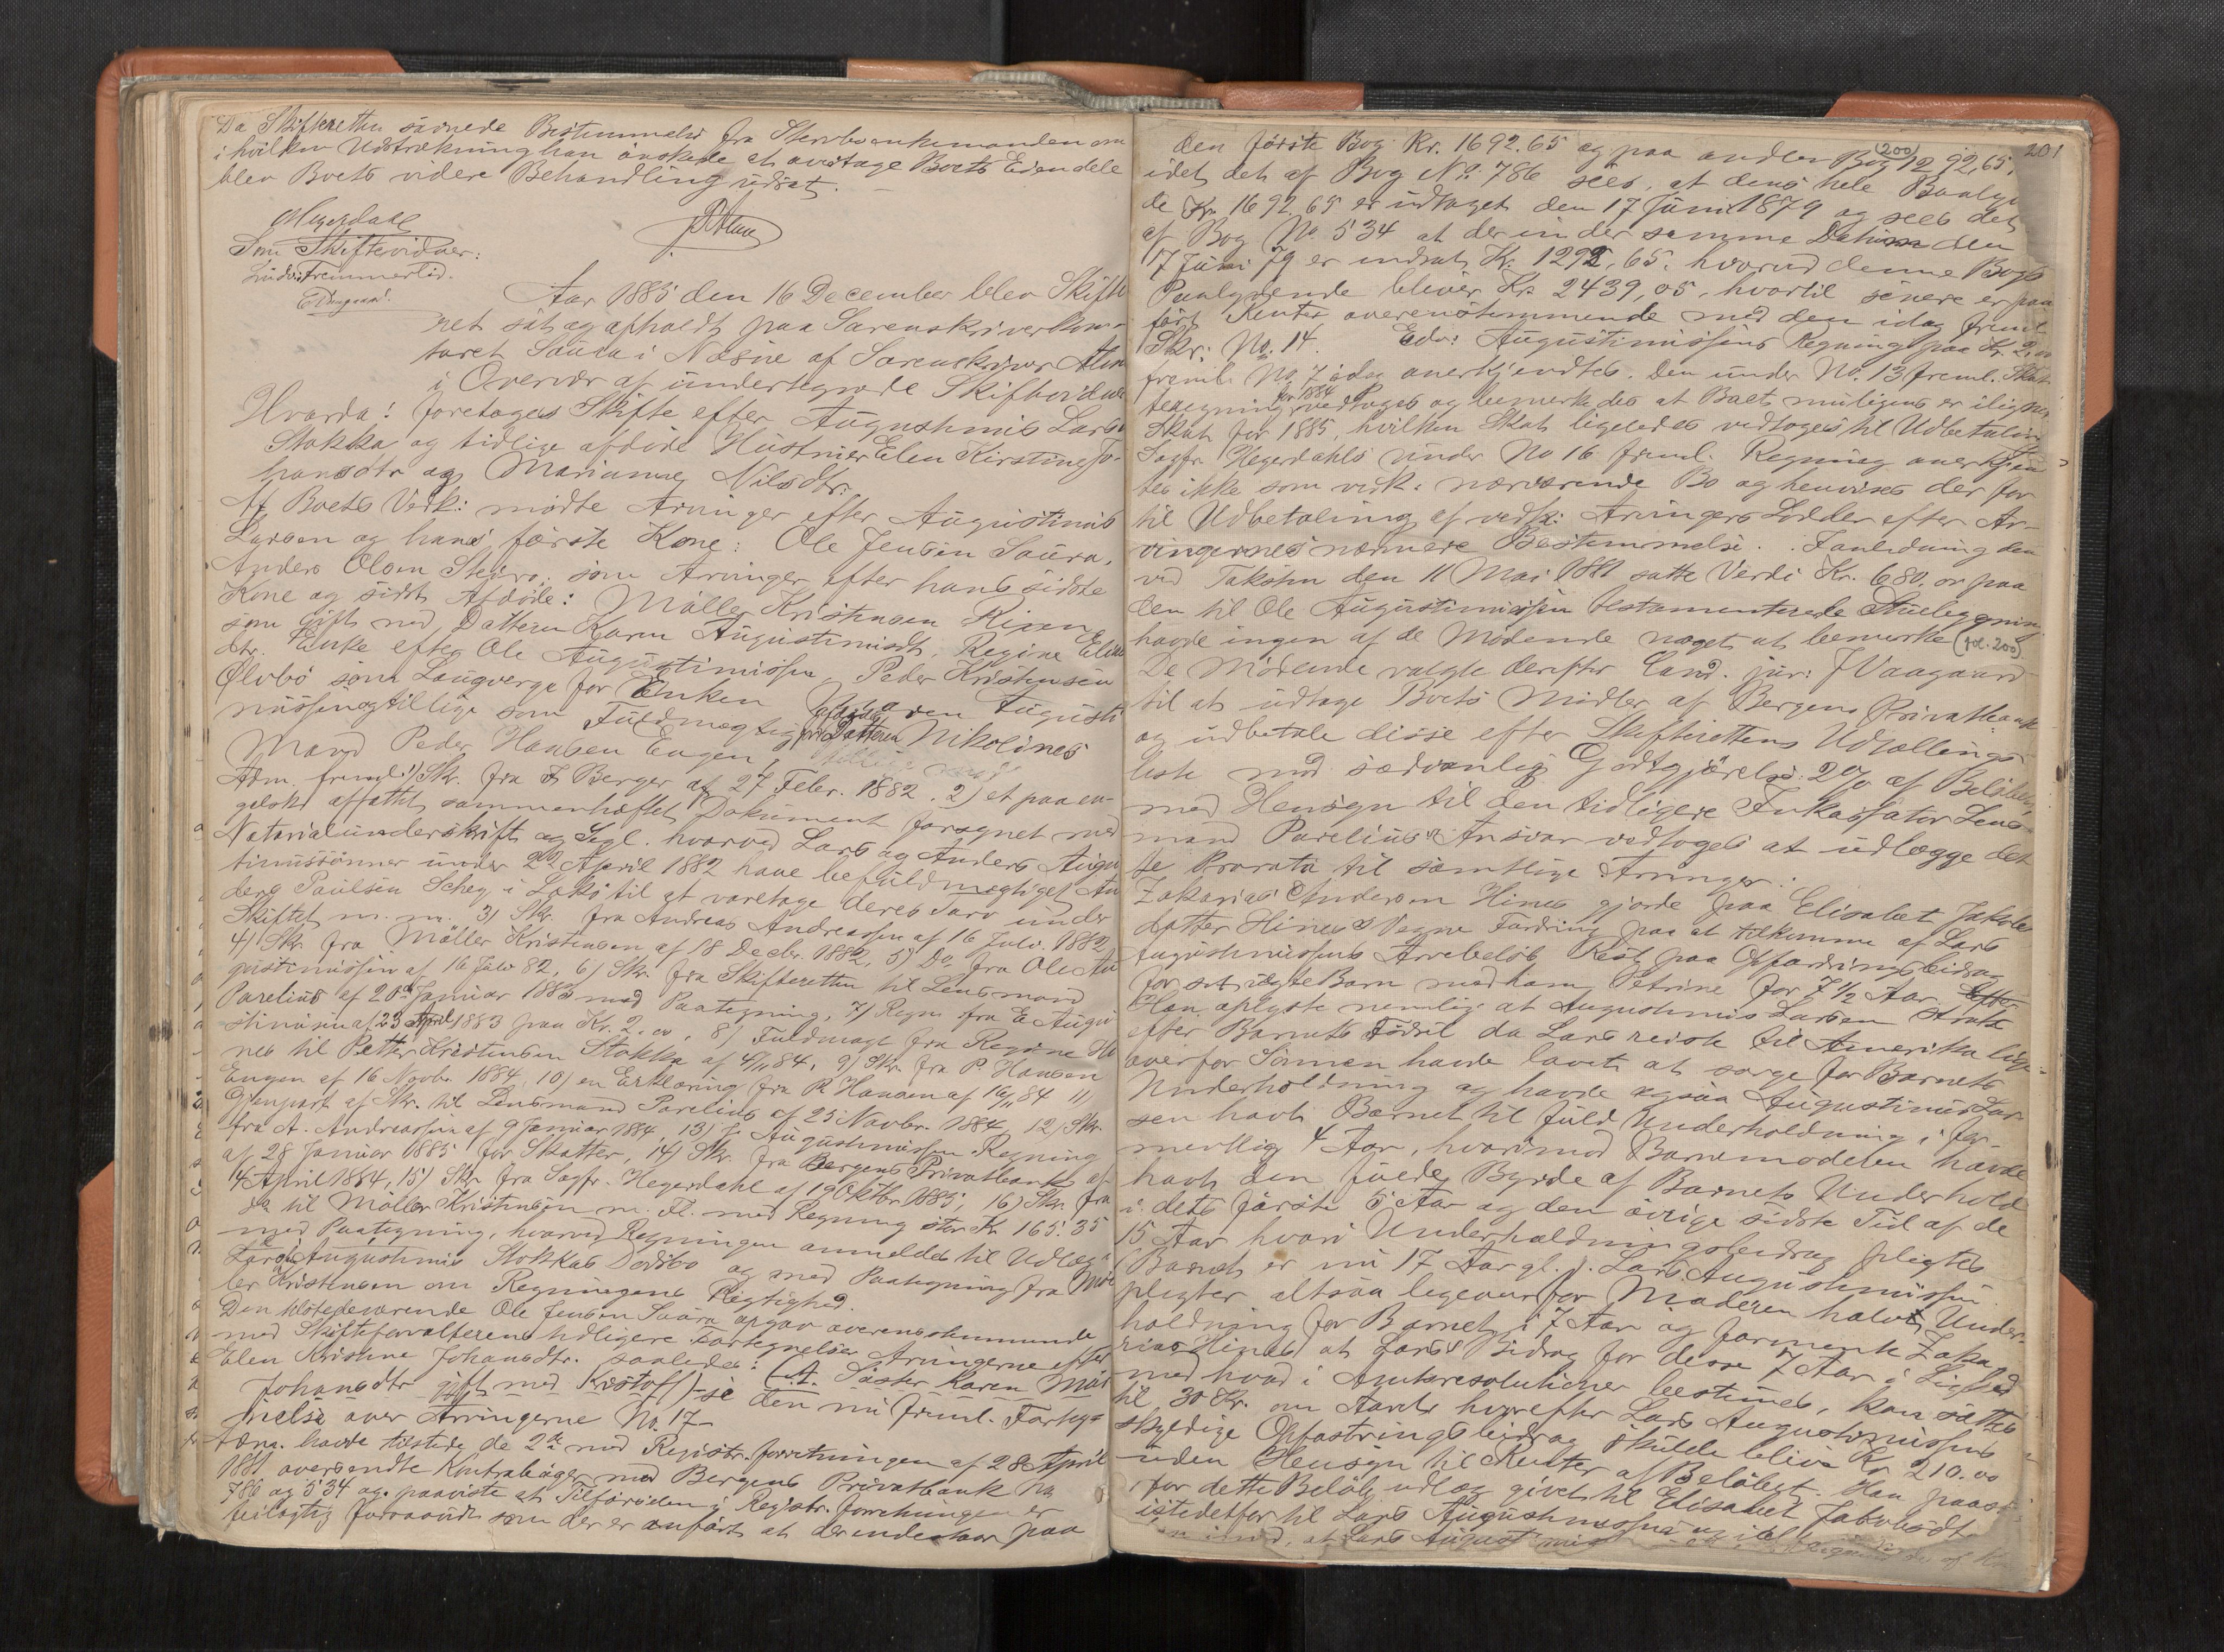 Da Skifteretten savnede Bestemmelse fra Stervboenkemanden om
i hvilken Udstrækning han ønskede at overtage Boets Eiendele
blev Boets videre Behandling udsat.
Som Skiftevidner:
Aar 1885 den 16 December blev Skifte
ret sat og afholdt paa Sorenskriverkon-
toret Saura i Næsne af Sorenskriver
i Overvær af undertegnede Skiftevidner
Hvorda: foretoges Skifte efter Augustinus Larsen
Stokka og tidlige afdøde Hustruer Elen Kirstine Jo-
hansdtr og Marianne Nilsdtr.
Af Boets Vedk: mødte Arvinger efter Augustinus
Larsen og hans første Kone: Ole Jensen Saura,
Anders Olsen som Arvinger efter hans sidste
Kone og sidst Afdøde: Møller Kristensen
som gift med Datteren Karen Augustinusdt, Regine
dtr. Enke efter Ole Augustinussen, Peder Kristensen
som Laugverge for Enken
nussen og tillige som Fuldmægtig for Datteren Nikolines
Mand Peder Hansen Engen,
Adm. freml: 1) Skr. fra Berger af 27 Febr. 1882. 2) et paa en-
gelsk affattet sammenhæftet Dokument forsynet med
Notarialunderskrift og Segl. hvorved Lars og Anders Augu
tinussønner under April 1882 have befuldmægtiget An
ders Paulsen i til at varetage deres Tarv under
Skiftet m. m. 3) Skr. fra Andreas Andreassen af 16 1882
4) Skr. fra Møller Kristensen af 18 Decbr. 1882, 5) Do. fra Ole Au
gustinussen af 16 82, 6) Skr. fra Skifteretten til Lensmand
Parelius af 20de Januar 1883 med Paategning, 7) Regn. fra E Augu
stinusen af 23 April 1883 paa Kr. 2.00, 8) Fuldmagt fra Regine
nes til Petter Kristensen Stokka af 4/11 84, 9) Skr. fra P. Hansen
Engen af 16 Novbr 1884, 10) en Erklæring fra P. Hansen af 16/11 84 11)
Gjenpart af Skr. til Lensmand Parelius af 25 Novbr. 1884, 12) Skr.
fra A. Andreassen af 9 Januar 1884, 13) Augustinussen Regning
af 28 Januar 1885 for Skatter, 14) Skr. fra Bergens Privatbank af
14 April 1884, 15) Skr. fra Sagfr. Hegerdahl af 19 Oktbr 1885, 16) Skr. fra
Do. til Møller Kristensen m. Fl. med Regning stor Kr. 165.35
med Paategning, hvorved Regningen anmeldes til Udlæg i
Augustinus Stokkas Dødsbo og med Paategning fra Møl
ler Kristensen om Regningens Rigtighed.
Den tilstedeværende Ole Jensen Saura opgav overensstemmende
med Skifteforvalterens tidligere Fortegnelse Arvingerne efter
Elen Kristine Johansdtr. saaledes: (A. Søster Karen
Johansdtr gift med Kristoff) - se den nu freml. Forteg-
nelse over Arvingerne No. 17 -
havde tilstede de 2de med Registr. forretningen af 28 April
1881 oversendte Kontrabøger med Bergens Privatbank No
786 og 534 og paaviste at Tilførselen i Registr. forretningen er
feilagtig forsaavidt som der er anført at der indestaar paa
200
201
den første Bog Kr. 1692.65 og paa anden Bog 1292,65,
idet det af Bog No. 786 sees, at dens hele Paalyd
de Kr. 1692,65 er udtaget den 17 Juni 1879 og sees det
af Bog No. 534 at der under samme Datum den
17 Juni 79 er indsat Kr. 1292,65. hvorved denne Bogs
Paalydende bliver Kr. 2439,05, hvortil senere er paa
ført Renter overensstemmende med den idag freml.
Skr: No. 14. Augustinussens Regning paa Kr. 2,00
freml. No. 7 idag anerkjendtes. Den under No. 13 freml. Skatte
regning for 1884 vedtoges og bemærkedes at Boets muligens er ilignet
Skat for 1885, hvilken Skat ligeledes vedtoges til Udbetaling
Sagfr. Hegerdahls under No 16 freml. Regning anerkjen
tes ikke som vedk: nærværende Bo og henvises derfor
til Udbetaling af vedk: Arvingers Lodder efter Ar-
vingernes nærmere Bestemmelse. I anledning den
ved Taksten den 11 Mai 1881 satte Verdi Kr. 680.00 paa
den til Ole Augustinussen testamenterede Stuebygning
havde ingen af de Mødende noget at bemærke (fol. 200)
De Mødende valgte derefter Cand. jur: J Vaagaard
til at udtage Boets Midler af Bergens Privatbank
og udbetale disse efter Skifterettens Udlodnings
liste mod sædvanlig Godtgjørelse 2% af Beløbet,
med Hensyn til den tidligere Inkassator Lens-
mand Parelius's Ansvar vedtoges at udlægge det
te Prorata til samtlige Arvinger.
Zakarias Anderson Hines gjorde paa Elisabet Jakobs
datter Hines's Vegne Fordring paa at tilkomme af Lars
Augustinussens Arvebeløb Rest paa Opfostringsbidrag
for sit uægte Barn med ham, Petrine for 7 1/2 Aar.
Han oplyste nemlig at Augustinus Larsen strax
efter Barnets Fødsel da Lars reiste til Amerika lige-
overfor Sønnen havde lovet at sørge for Barnets
Underholdning og havde ogsaa Augustinus Lar
sen havt Barnet til fuld Underholdning i for-
mentlig 4 Aar, hvorimod Barnemoderen havde
havt den fulde Byrde af Barnets Underhold
i dets første 5 Aar og den øvrige sidste Tid af de
15 Aar hvori Underholdningsbidrag pligtes
(Barnet er nu 17 Aar gl.). Lars Augustinussen
pligter altsaa ligeoverfor Moderen halvt Under-
holdning for Barnet i 7 Aar og formente Zaka
rias Hines at Lars's Bidrag for disse 7 Aar i Lighed
med hvad i Amtsresolutioner bestemmes, kan sættes
til 30 Kr. om Aaret hvorefter Lars Augustinussens
skyldige Opfostringsbidrag skulde blive Kr. 210.00
uden Hensyn til Renter af Beløbet. Han paastod
for dette Beløb udlæg givet til Elisabet Jakobsdt
istedetfor til Lars Augustinussen
at Lars